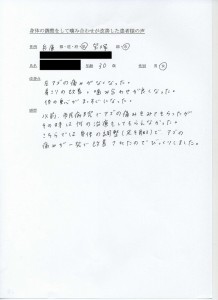 身体の調整をして噛み合わせが改善した患者様の声
住所 兵庫 都・道・府・県 宝塚 市
氏名 年齢 30 才 性別 男・女
左アゴの痛みがなくなった。
肩こりの改善と噛み合わせが良くなった。
体の重心がまっすぐになった。
以前、市民病院でアゴの痛みをみてもらったが
その時は何の治療もしてもらえなかった。
こちらでは身体の調整(足を触る)でアゴの
痛みが一気に改善されたのでびっくりしました。